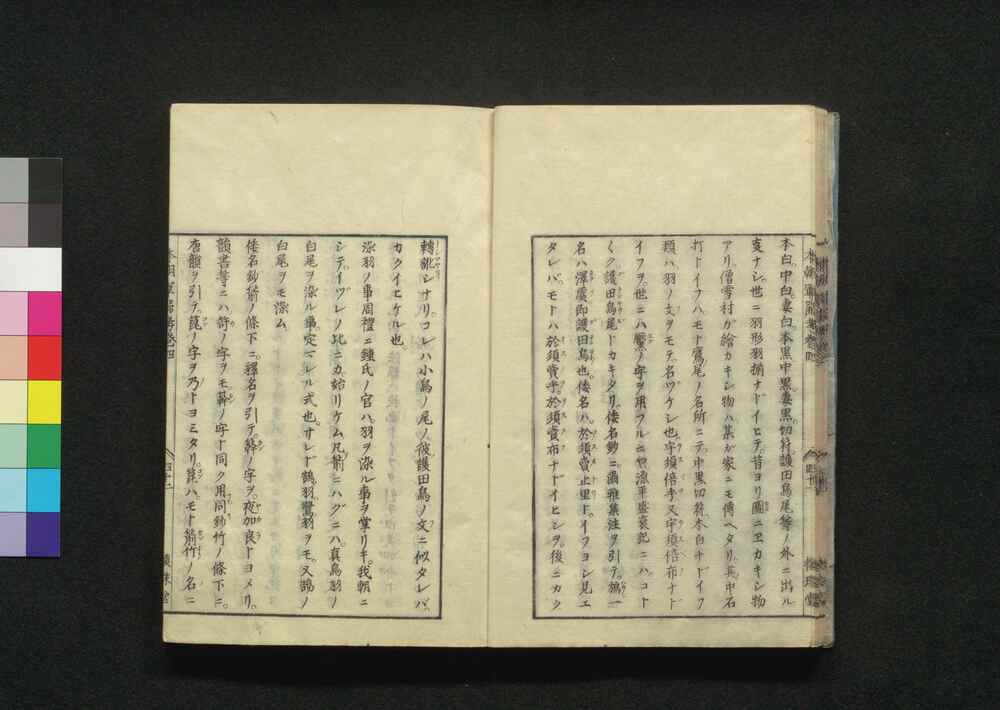 本白中白妻白本黒中黒妻黒切符護田鳥尾等ノ外ニ出ル
支ナシ世ニ羽形羽揃ナドイヒテ昔ヨリ圖ニヱカキシ物
アリ僧雪村ガ繪カキシ物ハ某ガ家ニモ傳ヘタリ其中石
打ドイフハモト鷹尾ノ名所ニテ中黒切符本白ナドイフ
類ハ羽ノ文ヲモテ名ツケシ也宇須倍李又宇須倍布ナド
イフヲ世ニハ ノ字ヲ用フルニヤ源平盛衰記ニハコト
く護田鳥尾トカキタリ倭名鈔ニ爾雅集注ヲ引テ鴋一
名ハ澤虞即護田鳥也倭名ハ於須賣止里トイフヨシ見エ
タレバモトハ於須賣乎於須賣布ナドイヒシヲ後ニカク
轉訛シナリコレハ小鳥ノ尾ノ彼護田鳥ノ文ニ似タレバ
カクイヒケル也
染羽ノ事周禮ニ鍾氏ノ官ハ羽ヲ染ル事ヲ掌リキ我朝ニ
シテイヅレノ比ニカ始リケム凡箭ニハグニハ真鳥羽ノ
白尾ヲ染ル事定レル式也サレド鶴羽鷺羽ヲモ又鵠ノ
白尾ヲモ染ム
倭名鈔箭ノ條下ニ釋名ヲ引テ ノ字ヲ夜加良トヨメリ
韻書等ニハ ノ字ヲモ ノ字ト同ク用同鈔竹ノ條下ニ
唐韻ヲ引テ箆ノ字ヲ乃トヨミタリ箆ハモト箭竹ノ名ニ
四十二